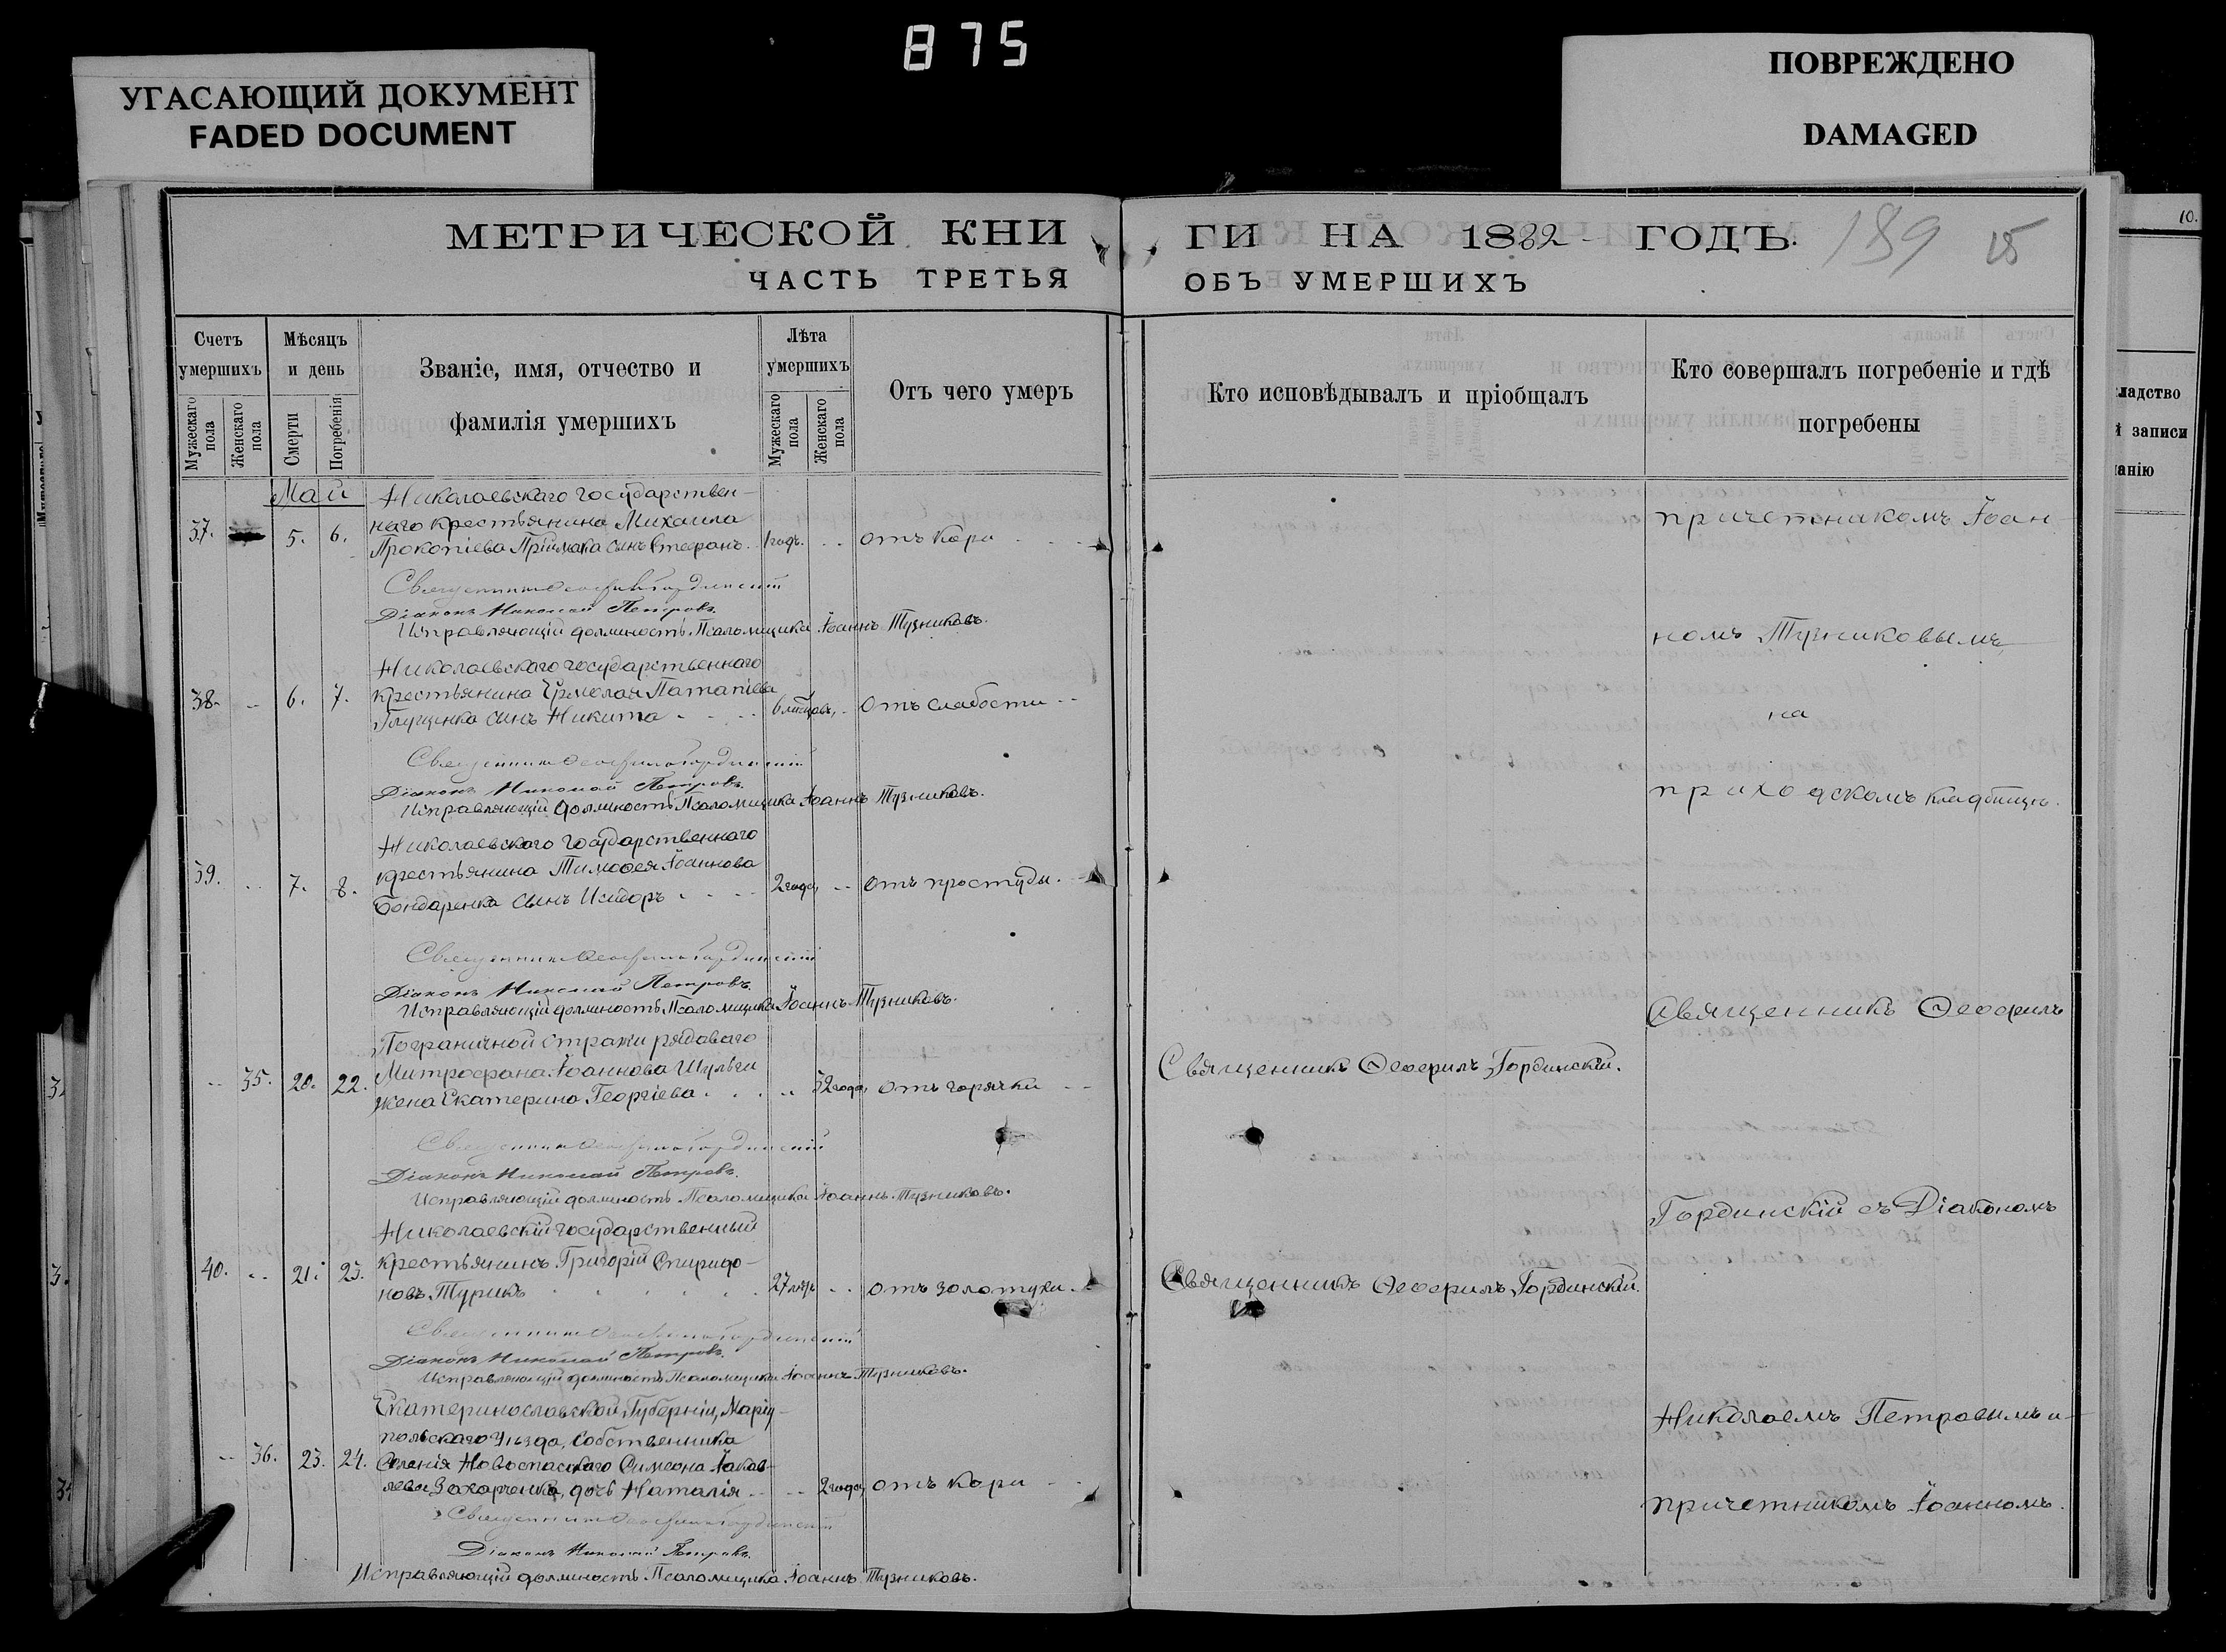 875
УГАСАЮЩИЙ ДОКУМЕНТ
FADED DOCUMENT
ПОВРЕЖДЕНО
DAMAGED
МЕТРИЧЕСКОЙ КНИ
ГИ НА 1882 ГОДЪ.
189
ЧАСТЬ ТРЕТЬЯ
ОБЪ УМЕРШИХЪ
Счетъ умершихъ
Мужескаго пола
Женскаго пола
Мѣсяцъ и день
Смерти
Погребенія
Званіе, имя, отчество и
фамилія умершихъ
Лѣта умершихъ
Мужескаго пола
Женскаго пола
Отъ чего умеръ
Кто исповѣдывалъ и пріобщалъ
Кто совершалъ погребеніе и гдѣ
погребены
10.
записи
Май
Николаевскаго государствен-
наго крестьянина Михаила
37. 5. 6. Прокопіева Пріймака сынъ Стефанъ. 1 годъ. отъ кори
Священникъ Ѳеофилъ Гординскій
Діаконъ Николай Петровъ.
Исправляющій должность Псаломщика Іоаннъ Тузниковъ.
Николаевскаго государственнаго
38. 6. 7. крестьянина Ермолая Патапіева
Глущенка сынъ Никита 6 мѣсяцовъ, отъ слабости
Священникъ Ѳеофилъ Гординскій
Діаконъ Николай Петровъ.
Исправляющій должность Псаломщика Іоаннъ Тузниковъ.
Николаевскаго государственнаго
39. 7. 8. крестьянина Тимоѳея Іоаннова
Бондаренка сынъ Исидоръ 2 года, отъ простуды.
Священникъ Ѳеофилъ Гординскій
Діаконъ Николай Петровъ.
Исправляющій должность Псаломщика Іоаннъ Тузниковъ.
Пограничной стражи рядаваго
35. 20. 22. Митрофана Іоаннова Шульги
жена Екатерина Георгіева 32 года, отъ горячки
Священникъ Ѳеофилъ Гординскій.
Священникъ Ѳеофилъ Гординскій
Діаконъ Николай Петровъ.
Исправляющій должность Псаломщика Іоаннъ Тузниковъ.
Николаевскій государственный
40. 21. 23. крестьянинъ Григорій Спиридо-
новъ Турикъ 27 лѣтъ отъ золотухи.
Священникъ Ѳеофилъ Гординскій.
Священникъ Ѳеофилъ Гординскій
Діаконъ Николай Петровъ.
Исправляющій должность Псаломщика Іоаннъ Тузниковъ.
Екатеринославской Губерніи, Маріу-
польскаго Уѣзда, собственника
36. 23. 24. Селенія Новоспаскаго Симеона Іаков-
лева Захарченка, дочь Наталія 2 года, отъ кори
Священникъ Ѳеофилъ Гординскій
Діаконъ Николай Петровъ.
Исправляющій должность Псаломщика Іоаннъ Тузниковъ.
причетникомъ Іоан-
номъ Тузниковымъ,
на
приходскомъ кладбищѣ.
Священникъ Ѳеофилъ
Гординскій съ Діакономъ
Николаемъ Петровымъ и
причетникомъ Іоанномъ.